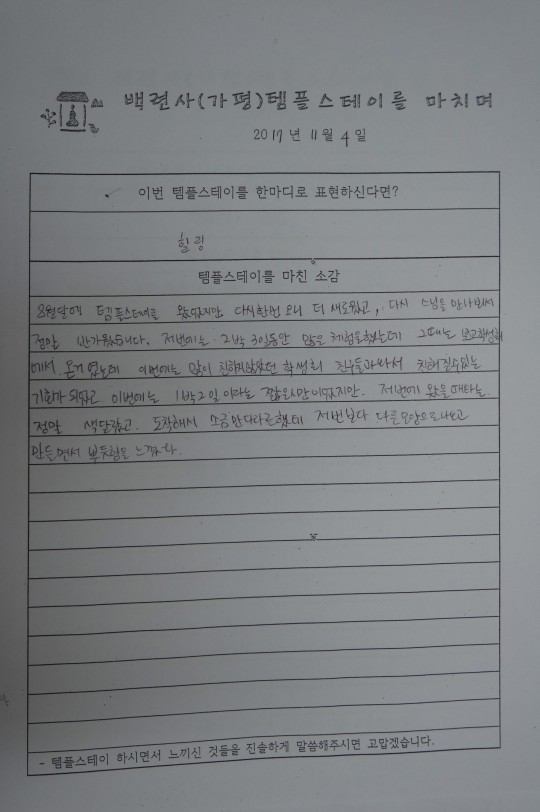 백련사(가평)템플스테이를 마치며
2017년 11월 4일
이번 템플스테이를 한마디로 표현하신다면?
힐링
템플스테이를 마친 소감
8월달에 템플스테이를 왔었지만 다시한번 오니 더 새로웠고, 다시 스님을 만나봬서
정말 반가웠습니다. 저번에는 2박 3일동안 많은 체험을했는데 그때는
에서 온거 였는데 이번에는 많이 친하지않았던 학생회 친구들과와서 친해질수있는
기회가 되었고 이번에는 1박2일 이라는 짧은시간이었지만. 저번에 왔을때랑은
정말 색달랐고. 도착해서 소금만다라를했는데 저번보다 다른모양으로나오고
만들면서 뿌듯함을 느꼈다.
- 템플스테이 하시면서 느끼신 것들을 진솔하게 말씀해주시면 고맙겠습니다.